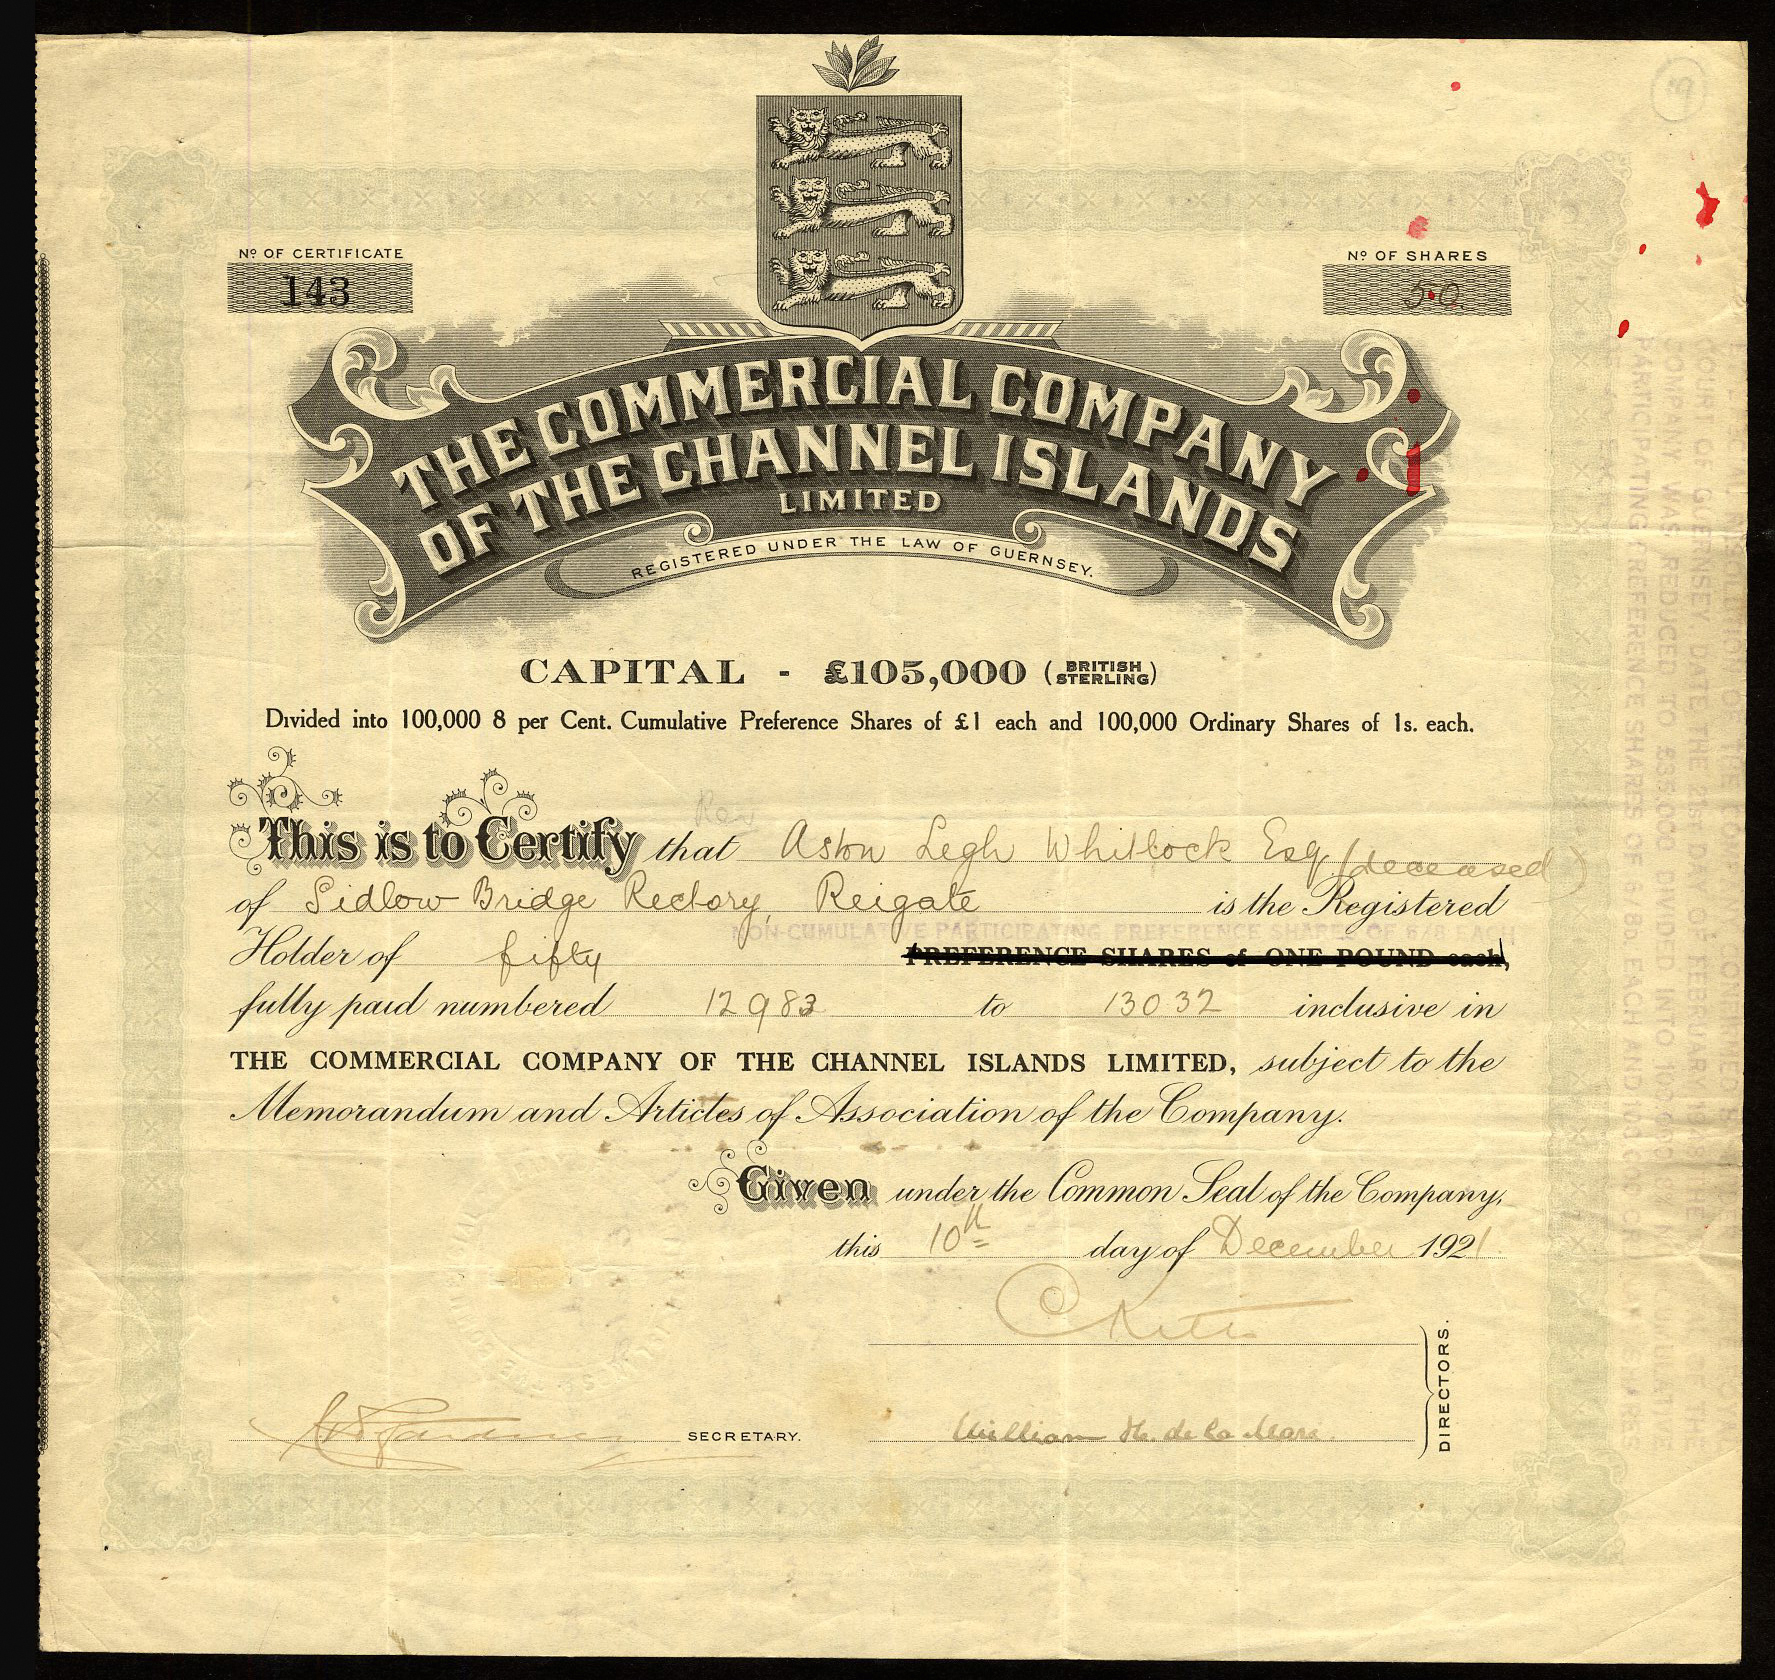 Nº OF CERTIFICATE
143
Nº OF SHARES
50
THE COMMERCIAL COMPANY
OF THE CHANNEL ISLANDS
LIMITED
REGISTERED UNDER THE LAW OF GUERNSEY.
CAPITAL - £105,000 (BRITISH STERLING)
Divided into 100,000 8 per Cent. Cumulative Preference Shares of £1 each and 100,000 Ordinary Shares of 1s. each.
Rev
This is to Certify that Aston Legh Whitlock Esq (deceased)
of Sidlow Bridge Rectory, Reigate is the Registered
NON-CUMULATIVE PARTICIPATING PREFERENCE SHARES OF 6/8 EACH
Holder of fifty PREFERENCE SHARES of ONE POUND each,
fully paid numbered 12983 to 13032 inclusive in
THE COMMERCIAL COMPANY OF THE CHANNEL ISLANDS LIMITED, subject to the
Memorandum and Articles of Association of the Company.
Given under the Common Seal of the Company,
this 10th day of December 1921.
SECRETARY.
William H. de la Mare.
DIRECTORS.
COURT OF GUERNSEY DATE THE 21st DAY OF FEBRUARY
COMPANY WAS REDUCED TO £35,000 DIVIDED INTO
PARTICIPATING PREFERENCE SHARES OF 6/8D EACH AND